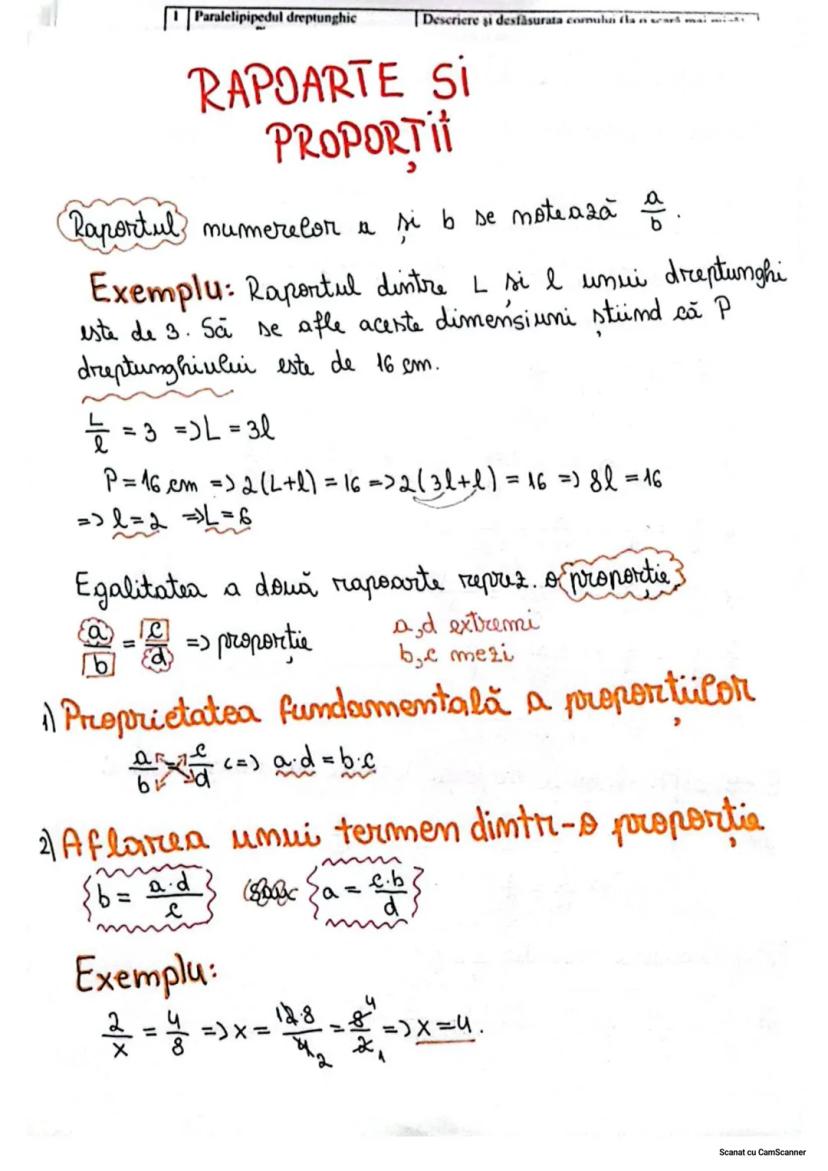 1 Paralelipipedul dreptunghic Descriere și desfășurata cornului (la o scară mai
RAPOARTE SI
PROPORȚII
Raportul numerelor a și b se notează a/b.
Exemplu: Raportul dintre L și l unui dreptunghi
este de 3. Să se afle aceste dimensiuni știind că P
dreptunghiului este de 16 cm.
L/l = 3 => L = 3l
P = 16 cm => 2(L+l) = 16 => 2(3l+l) = 16 => 8l = 16
=> l = 2 => L = 6
Egalitatea a două rapoarte reprez. o proporție
a/b = c/d => proporție
a,d extremi
b,c mezi
1) Proprietatea fundamentală a proporțiilor
a/b = c/d <=> a·d = b·c
2) Aflarea unui termen dintr-o proporție
b = a·d/c a = c·b/d
Exemplu:
2/x = 4/8 => x = 2·8/4 = 8/2 => x = 4.
Scanat cu CamScanner